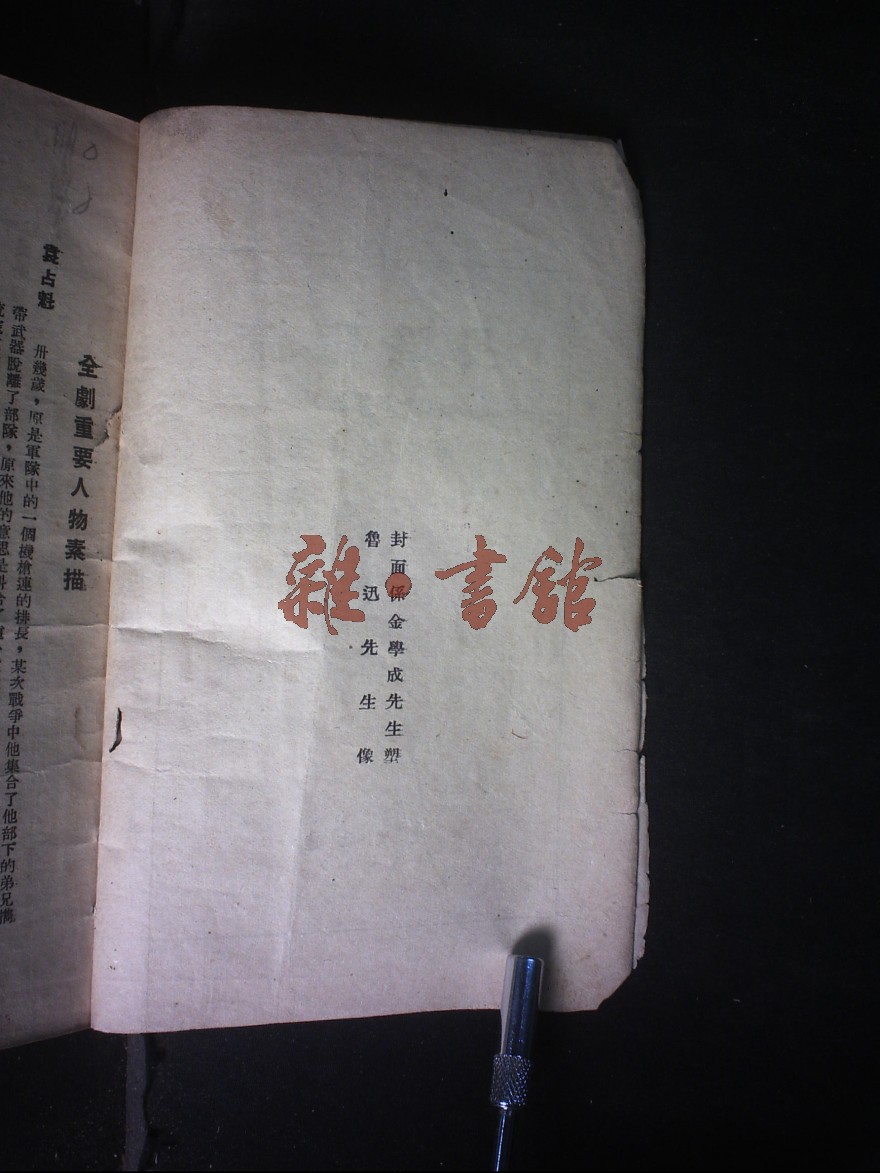 封面係金學成先生塑
魯迅先生像
雜·書館
全劇重要人物素描
袁占魁
卅幾歲，原是軍隊中的一個機槍連的排長，某次戰爭中他集合了他部下的弟兄攜
帶武器脫離了部隊，原來他的意思是糾合了